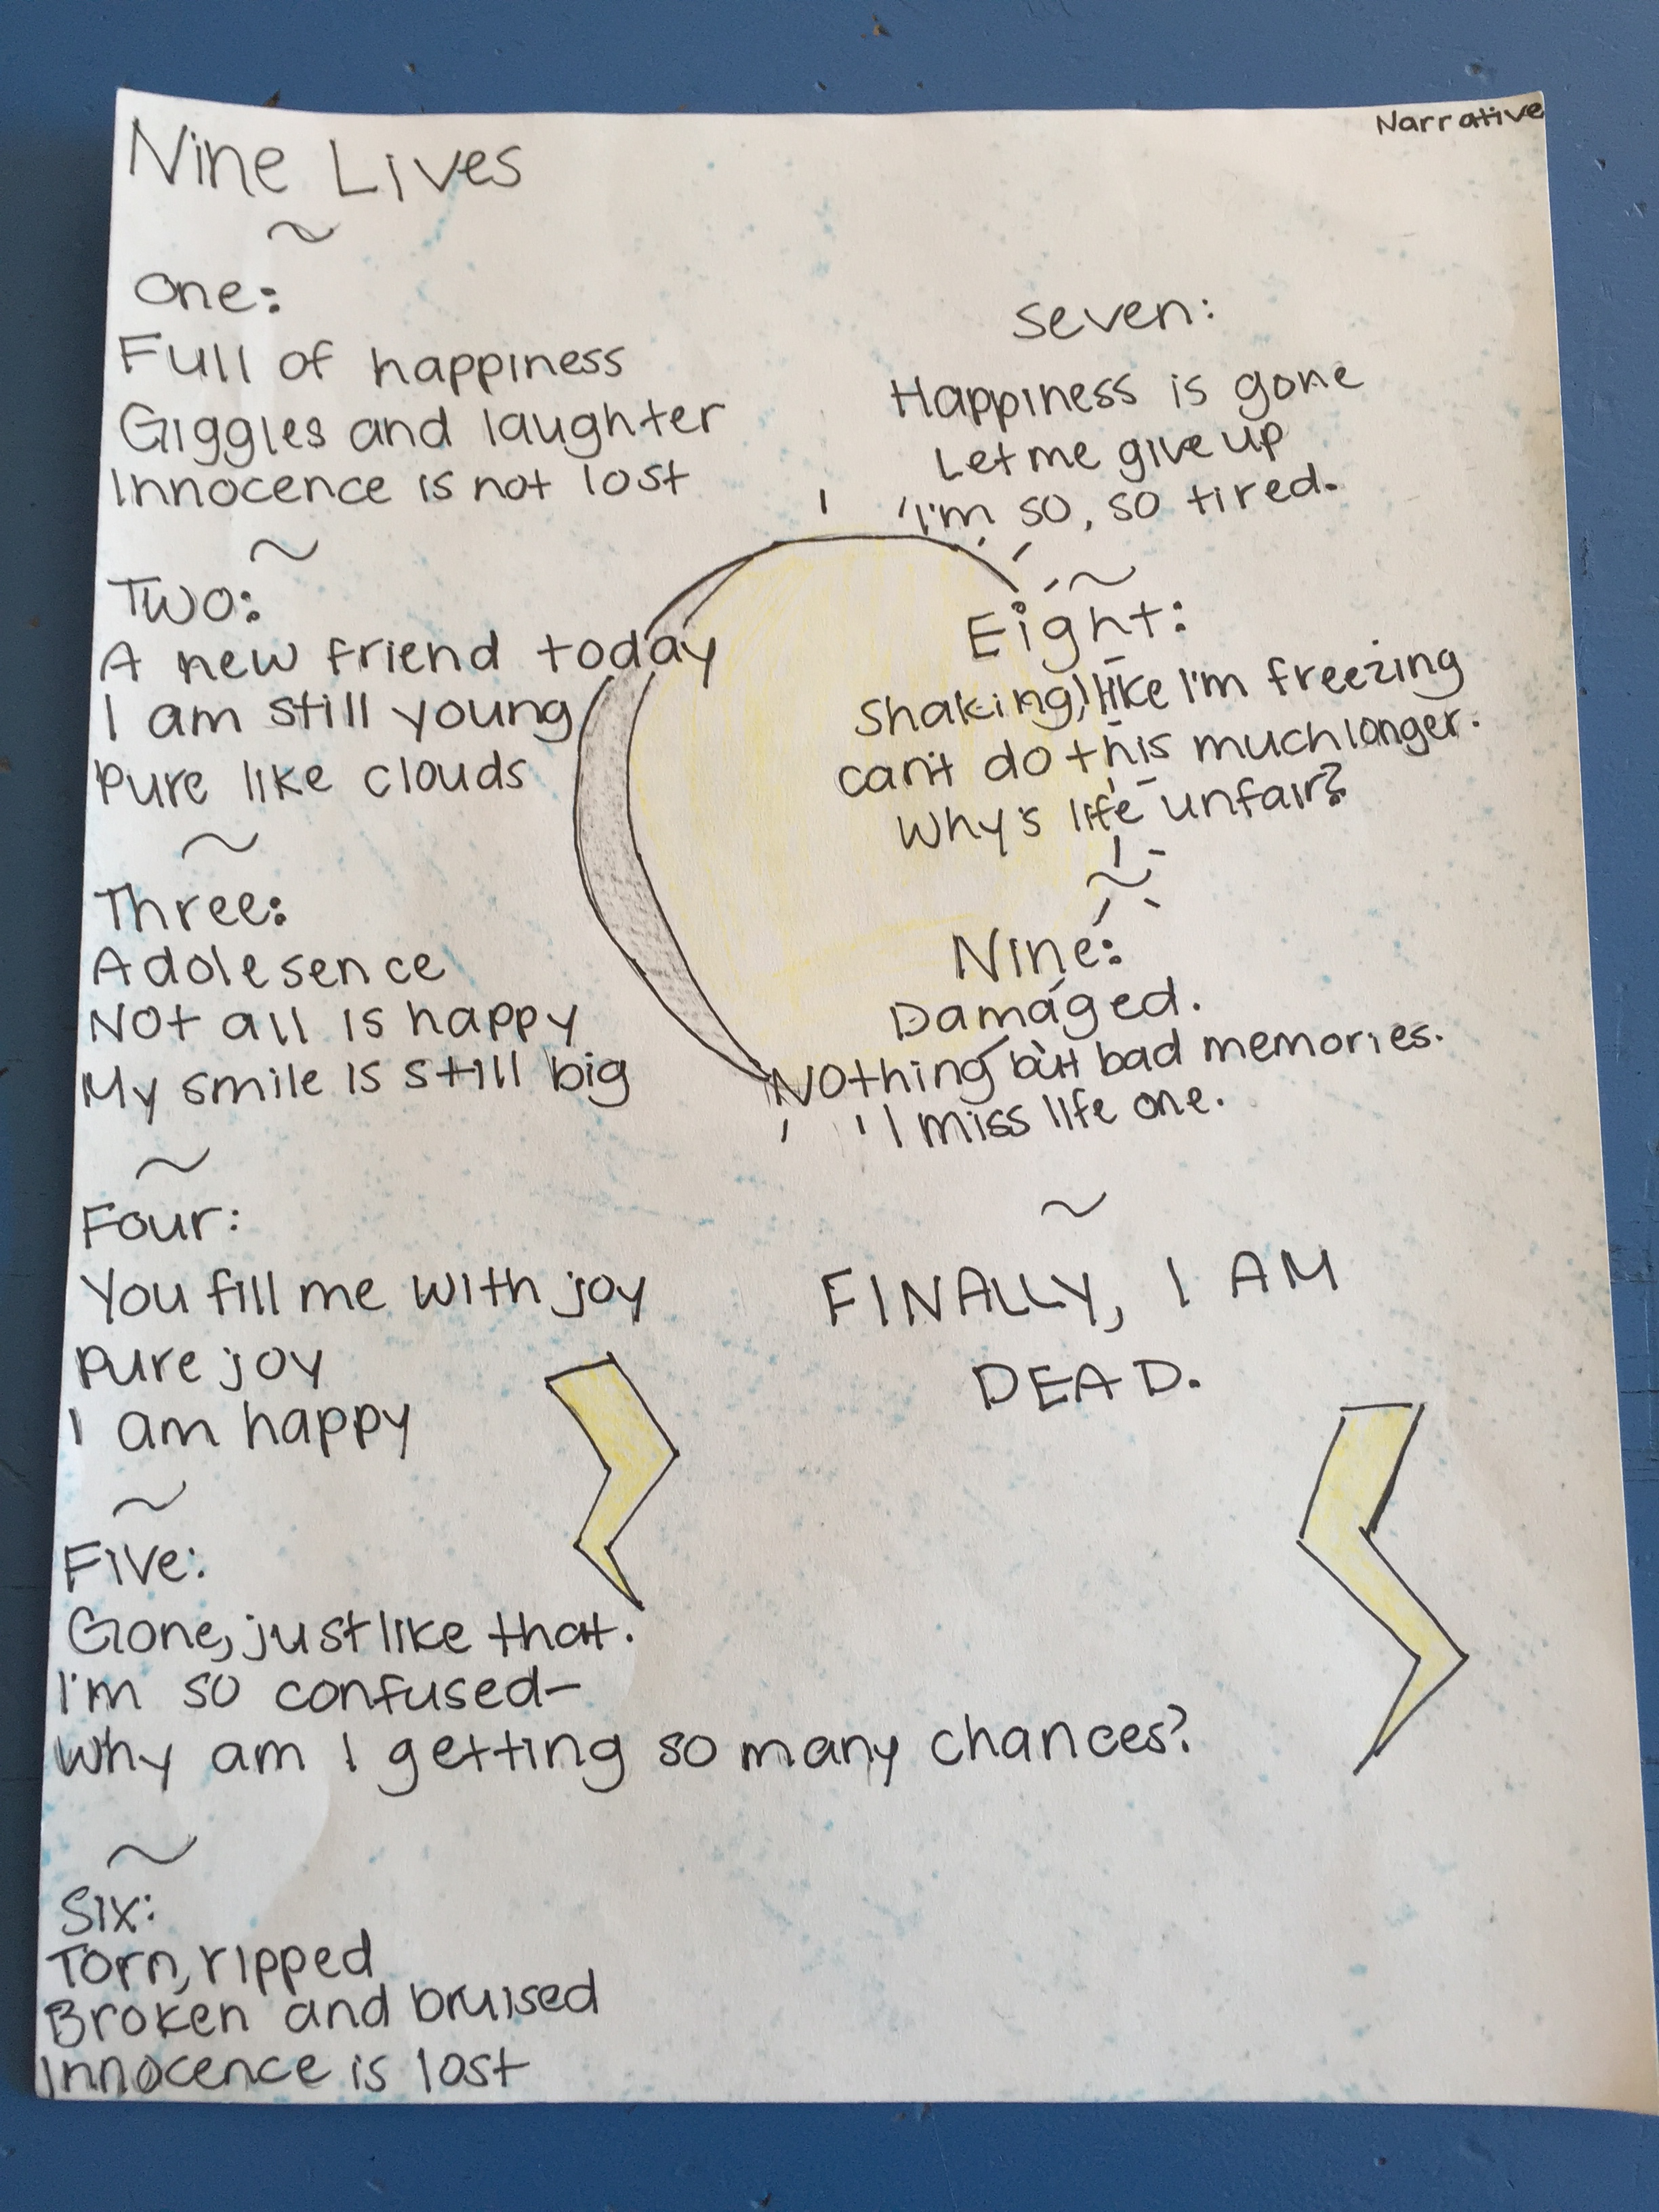 Narrative
Nine Lives
~
One:
Full of happiness
Giggles and laughter
Innocence is not lost
~
Two:
A new friend today
I am still young
Pure like clouds
~
Three:
Adolesence
Not all is happy
My smile is still big
~
Four:
You fill me with joy
Pure joy
I am happy
~
Five:
Gone, just like that.
I'm so confused-
Why am I getting so many chances?
~
Six:
Torn, ripped
Broken and bruised
Innocence is lost
Seven:
Happiness is gone
Let me give up
I'm so, so tired.
~
Eight:
Shaking, like I'm freezing
can't do this much longer.
Why's life unfair?
~
Nine:
Damaged.
Nothing but bad memories.
I miss life one.
~
FINALLY, I AM
DEAD.